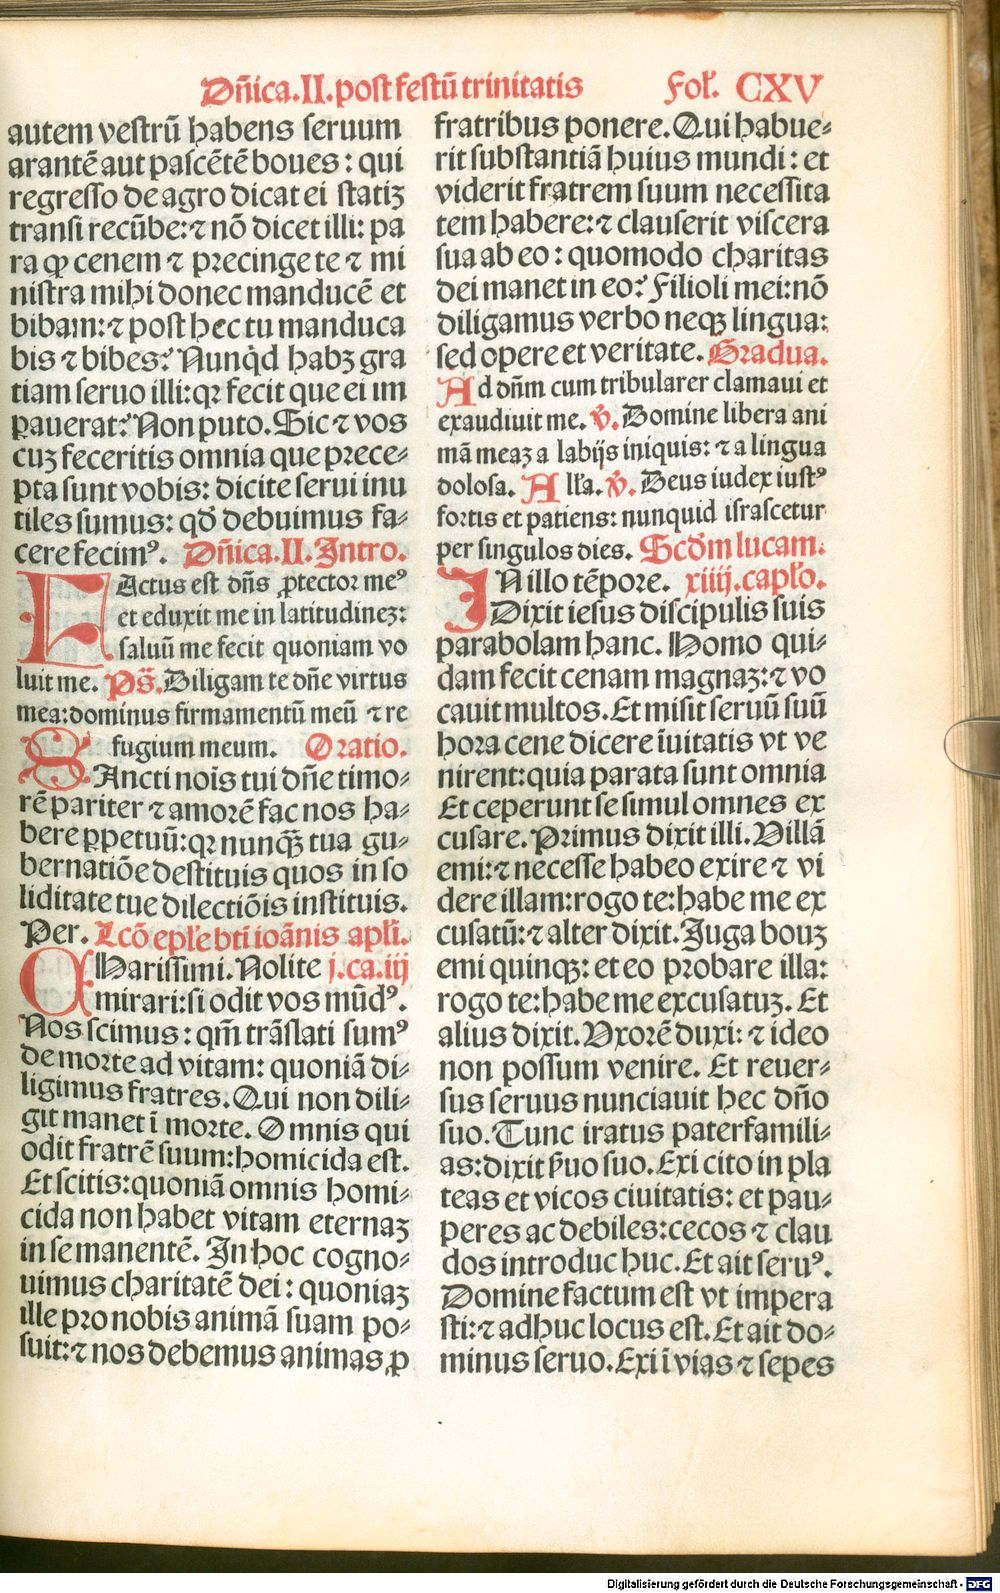 Dñica.II.post festū trinitatis Fol. CXV
autem vestrū habens seruum
arantē aut pascētē boues: qui
regresso de agro dicat ei statiʒ
transi recūbe: ⁊ nō dicet illi: pa
ra qꝫ cenem ⁊ precinge te ⁊ mi
nistra mihi donec manducē et
bibam: ⁊ post hec tu manduca
bis ⁊ bibes? Nunqͥd habꝫ gra
tiam seruo illi: qꝛ fecit que ei im
pauerat? Non puto. Sic ⁊ vos
cuʒ feceritis omnia que prece⸗
pta sunt vobis: dicite serui inu
tiles sumus: qd̄ debuimus fa⸗
cere fecimꝰ. Dñica.II. Intro.
FActus est dñs ꝓtector meꝰ
et eduxit me in latitudineʒ:
saluū me fecit quoniam vo
luit me. Ps̄. Diligam te dñe virtus
mea: dominus firmamentū meū ⁊ re
fugium meum. Oratio.
SAncti noīs tui dñe timo⸗
rē pariter ⁊ amorē fac nos ha⸗
bere ꝑpetuū: qꝛ nunqꝫ̄ tua gu⸗
bernatiōe destituis quos in so
liditate tue dilectiōis instituis.
Per. Lcō epłe bti ioānis apłi.
CHarissimi. Nolite j.ca.iij
mirari: si odit vos mūdꝰ.
Nos scimus: qm̄ trāslati sumꝰ
de morte ad vitam: quoniā di⸗
ligimus fratres. Qui non dili⸗
git manet ī morte. Omnis qui
odit fratrē suum: homicida est.
Et scitis: quoniā omnis homi⸗
cida non habet vitam eternaʒ
in se manentē. In hoc cogno⸗
uimus charitatē dei: quoniaʒ
ille pro nobis animā suam po⸗
suit: ⁊ nos debemus animas ꝓ
fratribus ponere. Qui habue⸗
rit substantiā huius mundi: et
viderit fratrem suum necessita
tem habere: ⁊ clauserit viscera
sua ab eo: quomodo charitas
dei manet in eo? Filioli mei: nō
diligamus verbo neqꝫ lingua:
sed opere et veritate. Gradua.
Ad dñm cum tribularer clamaui et
exaudiuit me. ℣. Domine libera ani
mā meaʒ a labijs iniquis: ⁊ a lingua
dolosa. Alła. ℣. Deus iudex iustꝰ
fortis et patiens: nunquid irascetur
per singulos dies. Scd̄m lucam.
IN illo tēpore. xiiij.capło.
Dixit iesus discipulis suis
parabolam hanc. Homo qui⸗
dam fecit cenam magnaʒ: ⁊ vo
cauit multos. Et misit seruū suū
hora cene dicere īuitatis vt ve
nirent: quia parata sunt omnia
Et ceperunt se simul omnes ex
cusare. Primus dixit illi. Villā
emi: ⁊ necesse habeo exire ⁊ vi
dere illam: rogo te: habe me ex
cusatū: ⁊ alter dixit. Juga bouʒ
emi quinqꝫ: et eo probare illa:
rogo te: habe me excusatuʒ. Et
alius dixit. Vxorē duxi: ⁊ ideo
non possum venire. Et reuer⸗
sus seruus nunciauit hec dño
suo. Tunc iratus paterfamili⸗
as: dixit ẜuo suo. Exi cito in pla
teas et vicos ciuitatis: et pau⸗
peres ac debiles: cecos ⁊ clau
dos introduc huc. Et ait seruꝰ.
Domine factum est vt impera
sti: ⁊ adhuc locus est. Et ait do⸗
minus seruo. Exi ī vias ⁊ sepes
Digitalisierung gefördert durch die Deutsche Forschungsgemeinschaft - DFG